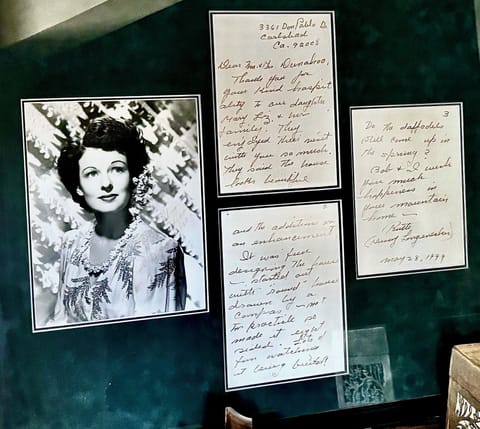 3361 Don Pablo D
Carlsbad
Ca. 92008
Dear Mr. & Mrs. Dunahoo,
Thank you for
your kind hospit
ality to our daughter
Mary Liz & her
families. They
enjoyed their visit
with you so much.
They said the house
looks beautiful
and the addition
an enhancement
It was fun
designing the house
started out
with "round" house
drawn by a
compass,
made it eight
sided. Lots of
fun watching
it being built
3
Do the daffodils
still come up in
the spring?
Bob & I wish
you much
happiness in
your mountain
home —
Ruth
May 28, 1999